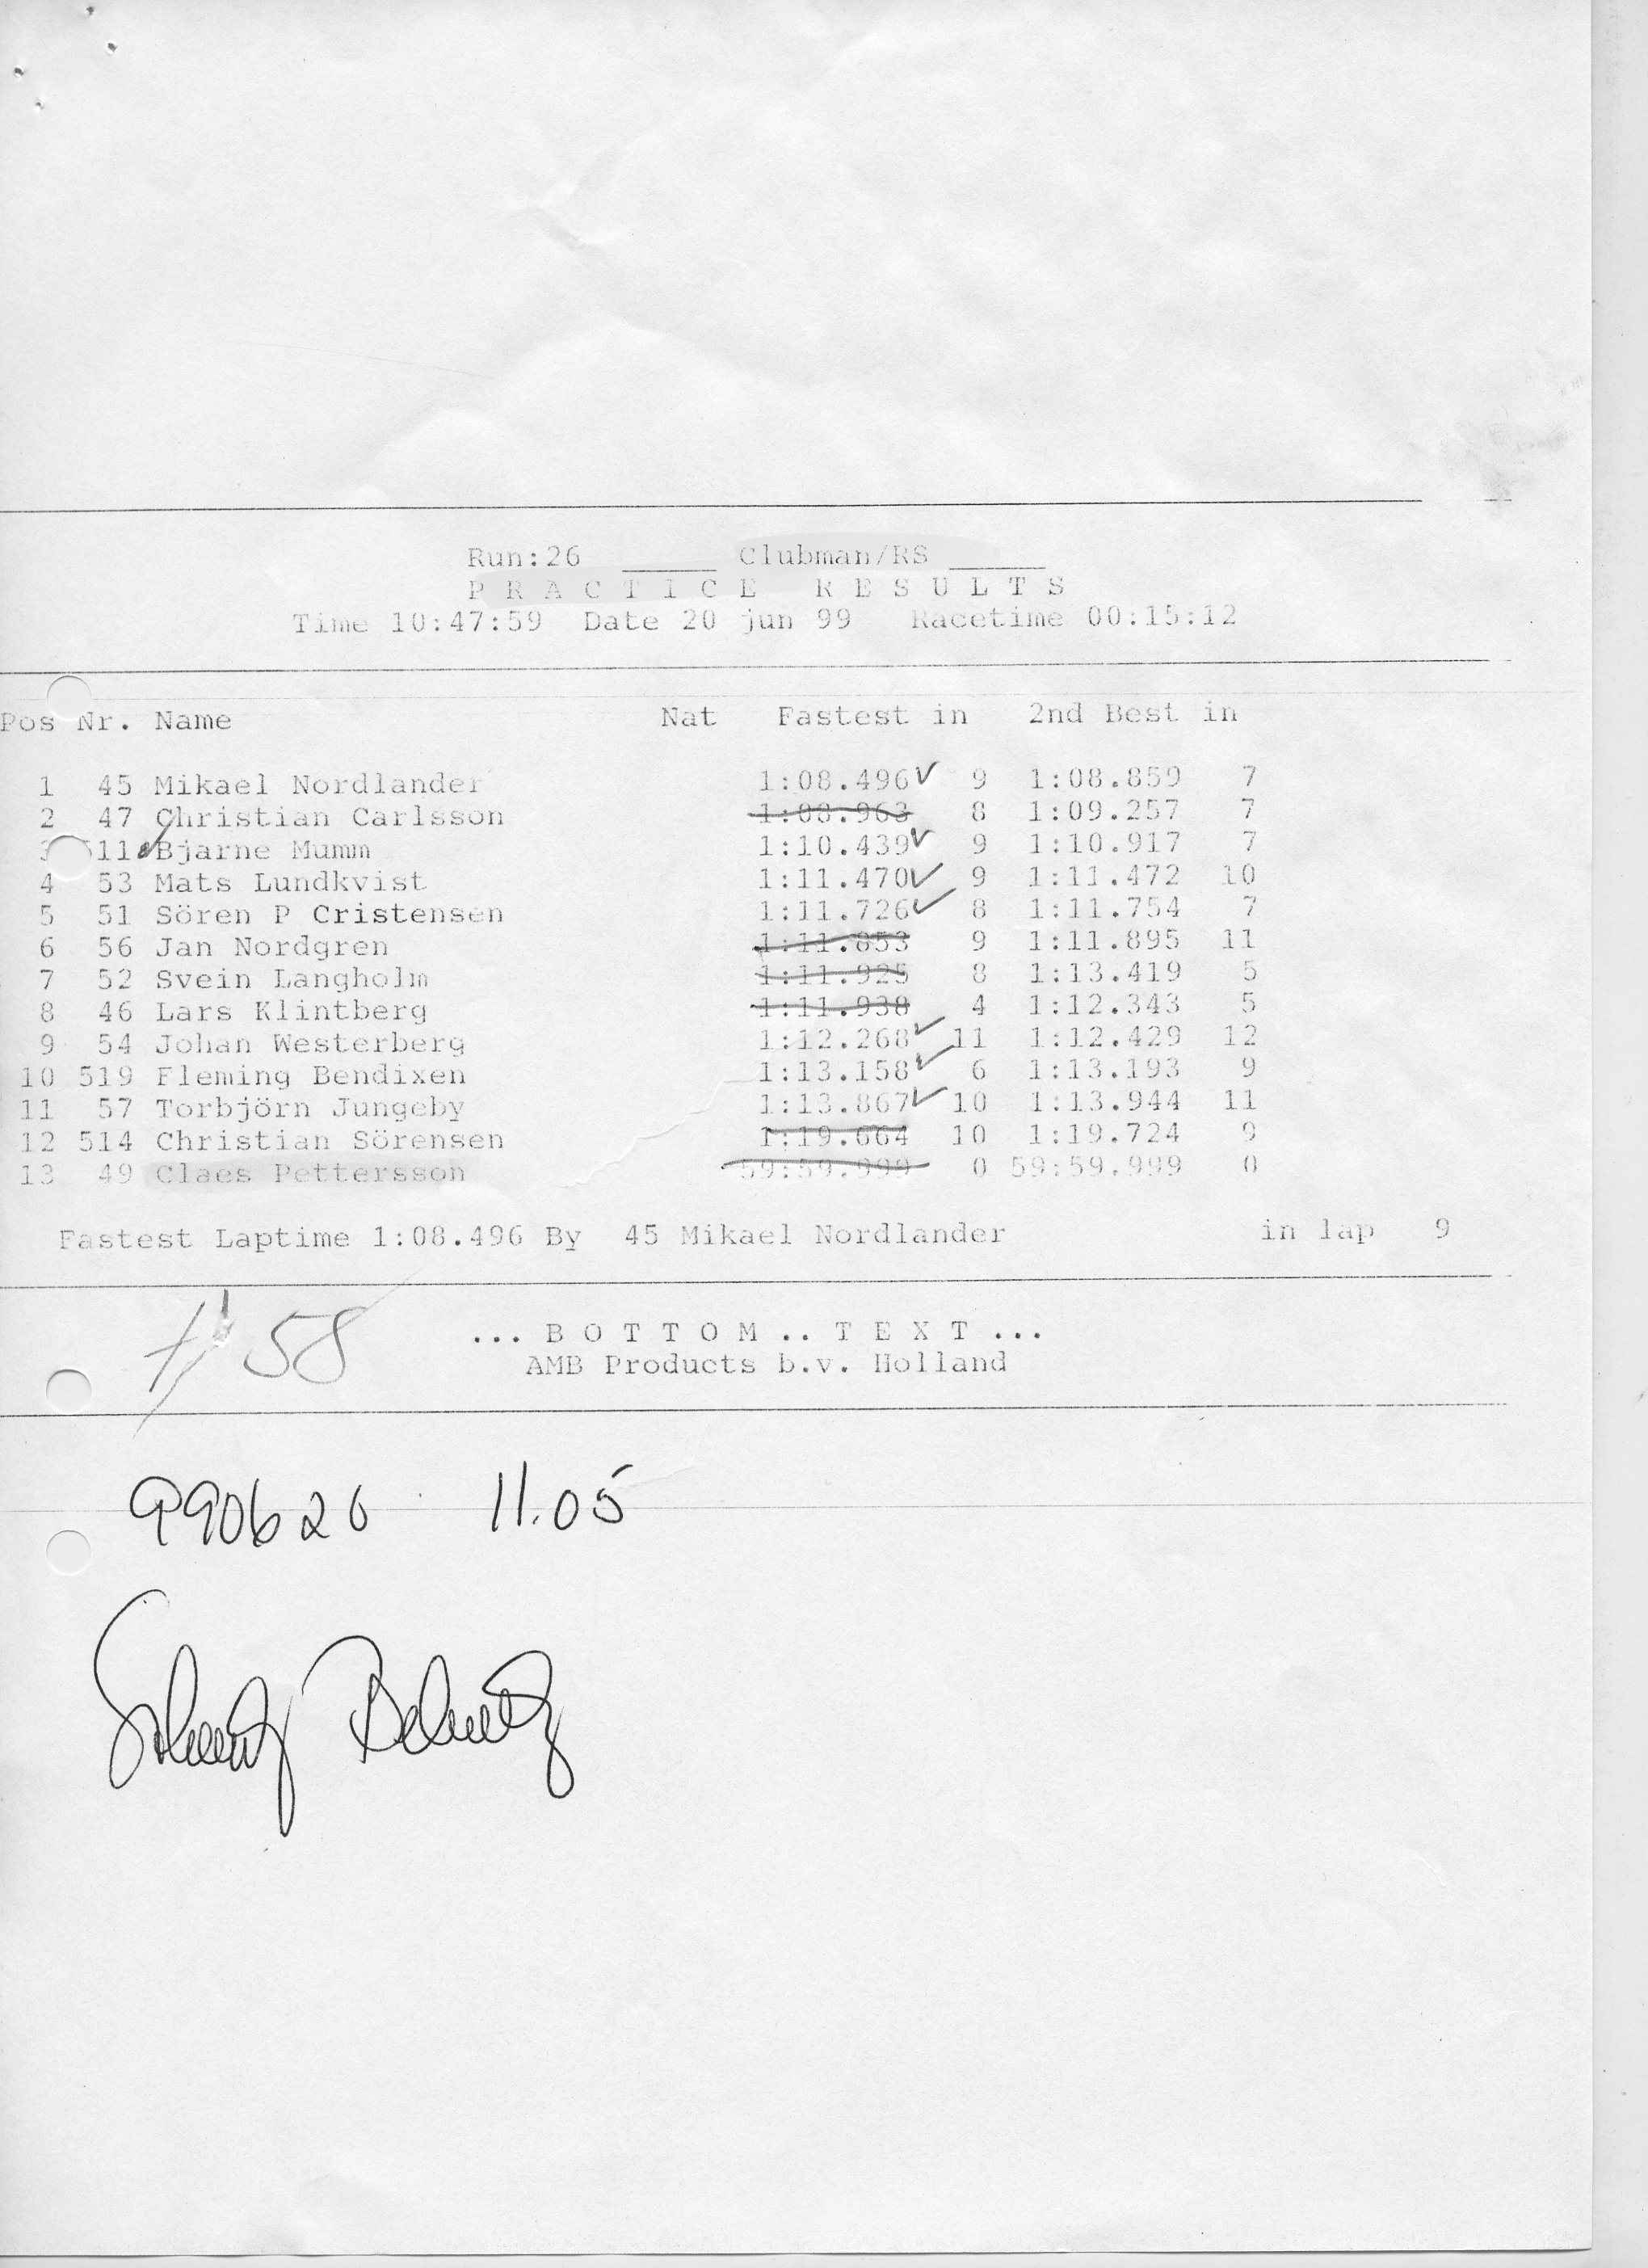 Run:26 _____ Clubman/RS _____
P R A C T I C E R E S U L T S
Time 10:47:59 Date 20 jun 99 Racetime 00:15:12
Pos Nr. Name Nat Fastest in 2nd Best in
1 45 Mikael Nordlander 1:08.496 ✓ 9 1:08.859 7
2 47 Christian Carlsson 1:08.963 8 1:09.257 7
3 511 Bjarne Mumm 1:10.439 ✓ 9 1:10.917 7
4 53 Mats Lundkvist 1:11.470 ✓ 9 1:11.472 10
5 51 Sören P Cristensen 1:11.726 ✓ 8 1:11.754 7
6 56 Jan Nordgren 1:11.853 9 1:11.895 11
7 52 Svein Langholm 1:11.925 8 1:13.419 5
8 46 Lars Klintberg 1:11.938 4 1:12.343 5
9 54 Johan Westerberg 1:12.268 ✓ 11 1:12.429 12
10 519 Fleming Bendixen 1:13.158 ✓ 6 1:13.193 9
11 57 Torbjörn Jungeby 1:13.867 ✓ 10 1:13.944 11
12 514 Christian Sörensen 1:19.664 10 1:19.724 9
13 49 Claes Pettersson 59:59.999 0 59:59.999 0
Fastest Laptime 1:08.496 By 45 Mikael Nordlander in lap 9
58
... B O T T O M .. T E X T ...
AMB Products b.v. Holland
990620 11.05